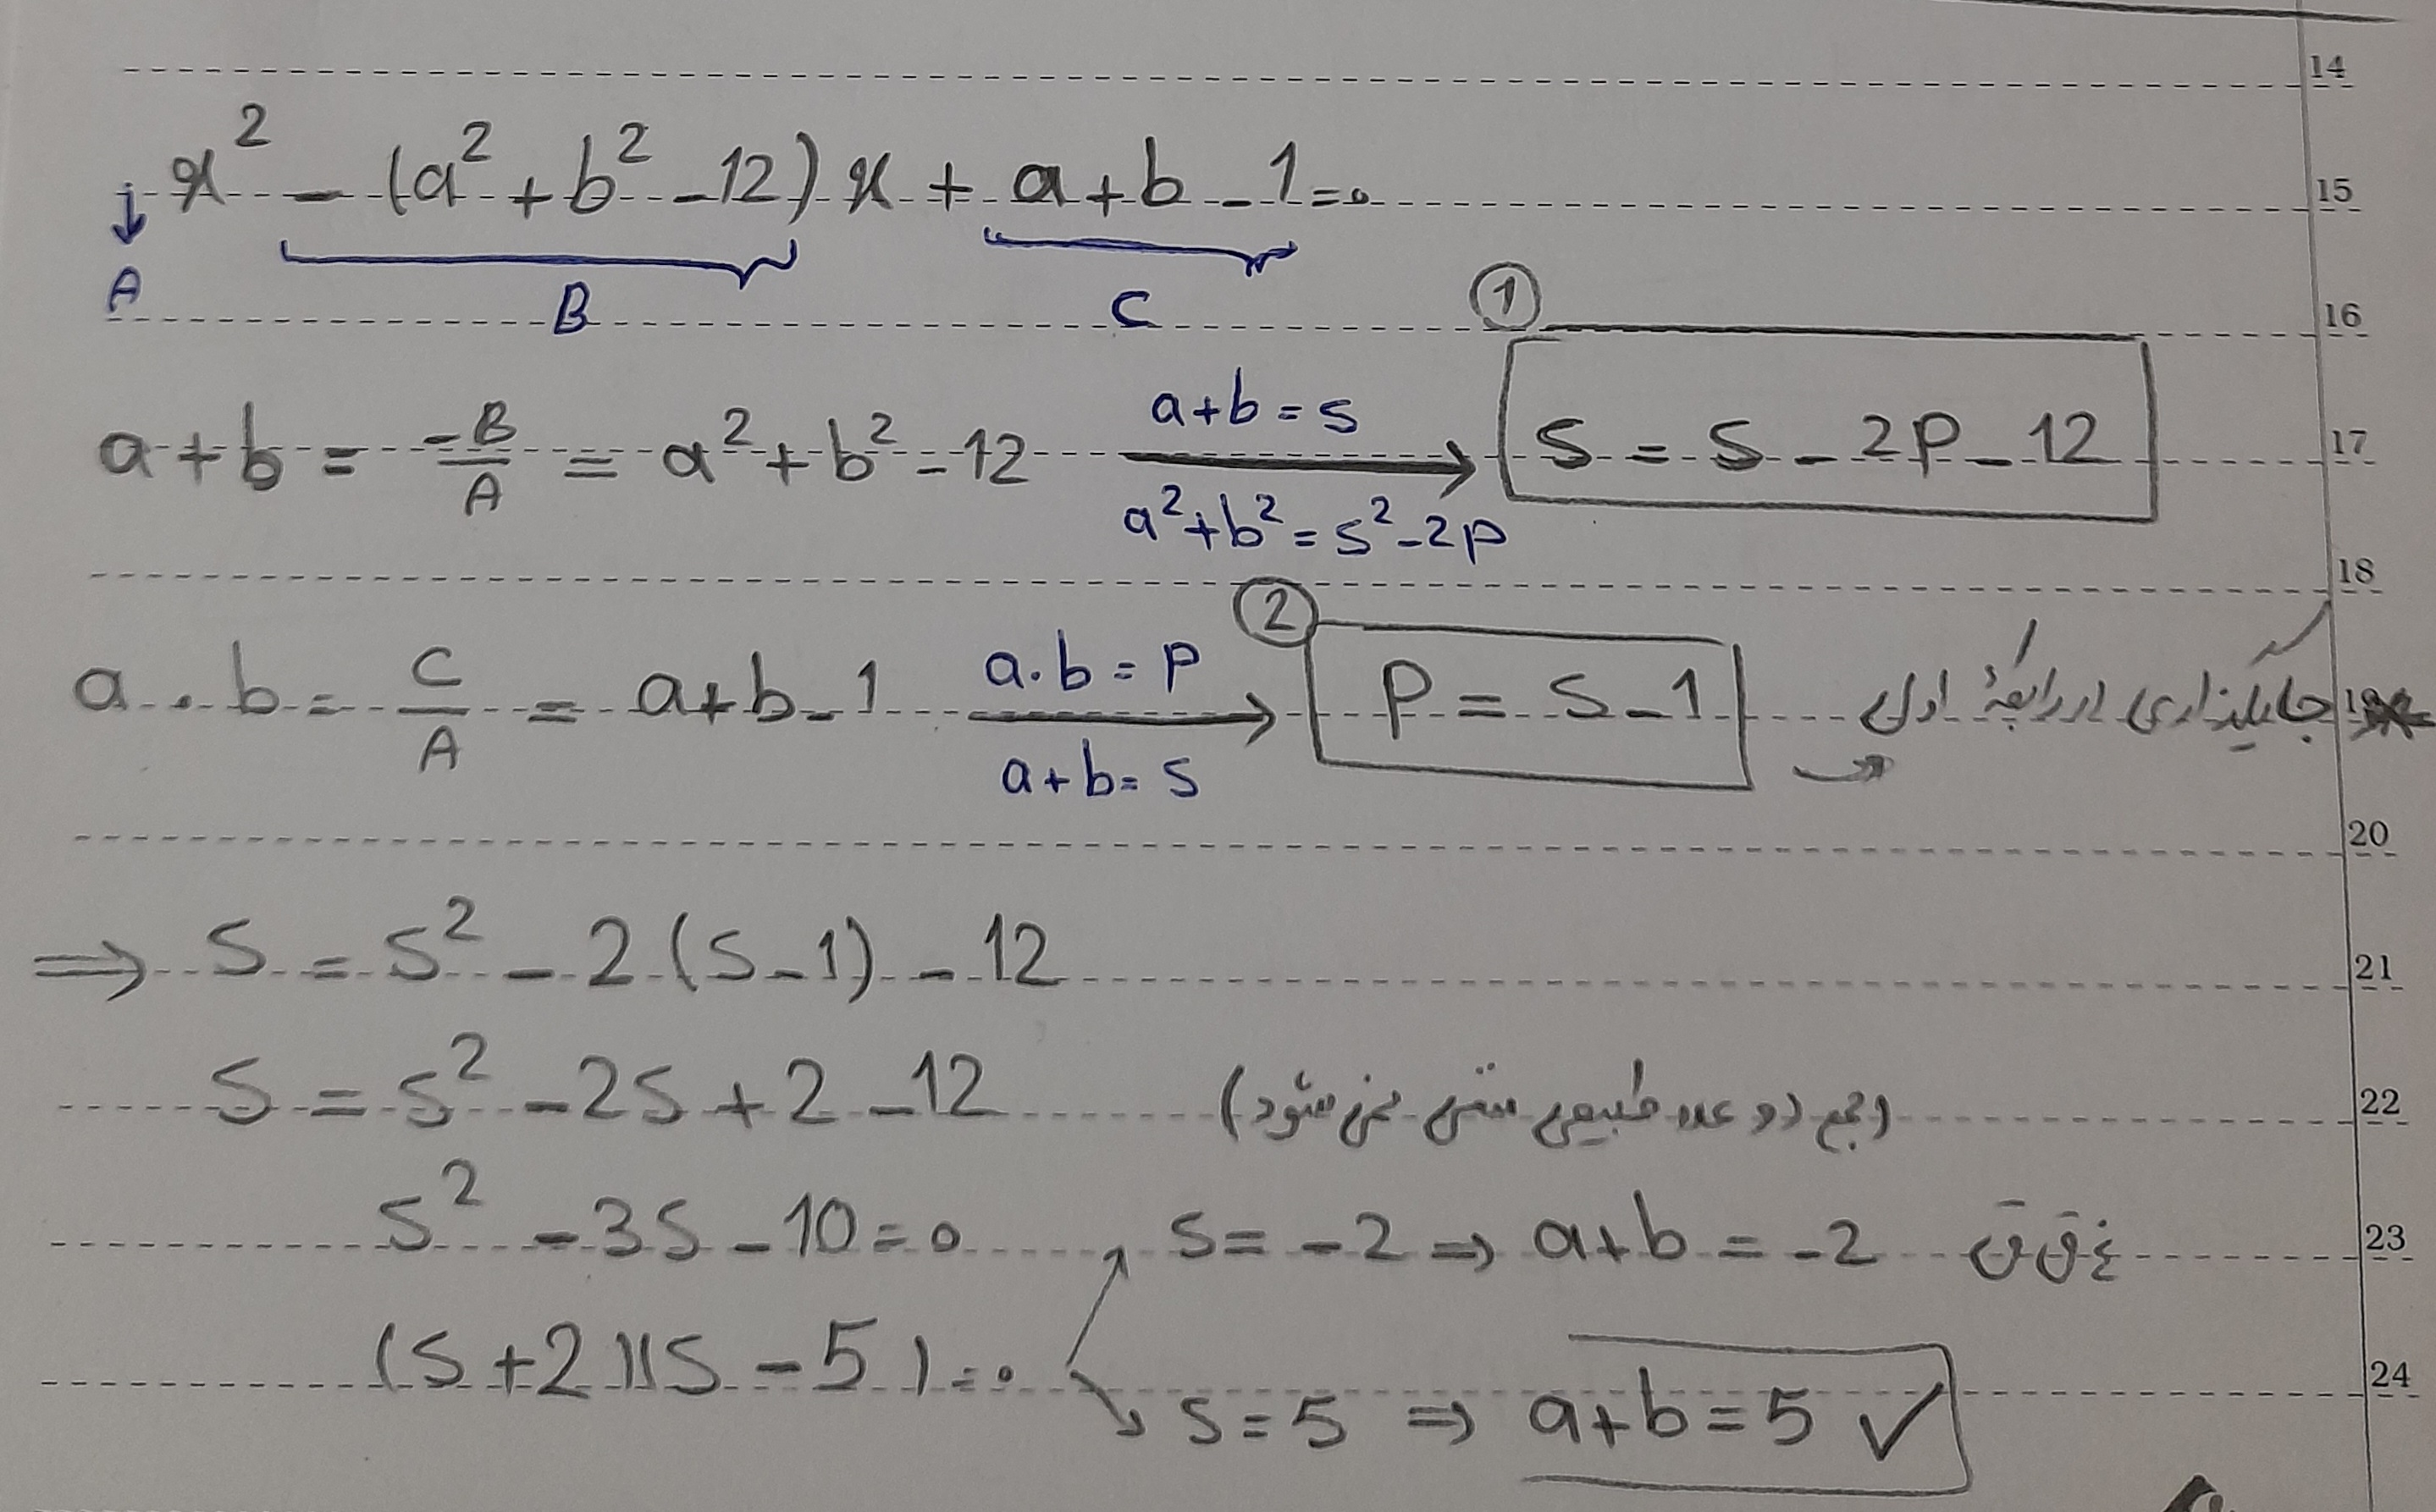 14
x² - (a² + b² - 12) x + a + b - 1 = 0 15
A B C 16
①
a + b = -B/A = a² + b² - 12 a+b=s a²+b²=s²-2p S = S - 2P - 12 17
18
②
a . b = C/A = a+b-1 a.b=p a+b=s P = S - 1 جایگذاری در رابطهٔ اول 19
20
⇒ S = S² - 2(S-1) - 12 21
S = S² - 2S + 2 - 12 (جمع دو عدد طبیعی منفی نمی شود) 22
S² - 3S - 10 = 0 S = -2 ⇒ a+b = -2 غ ق ق 23
(S+2)(S-5) = 0 24
S = 5 ⇒ a+b = 5 ✓